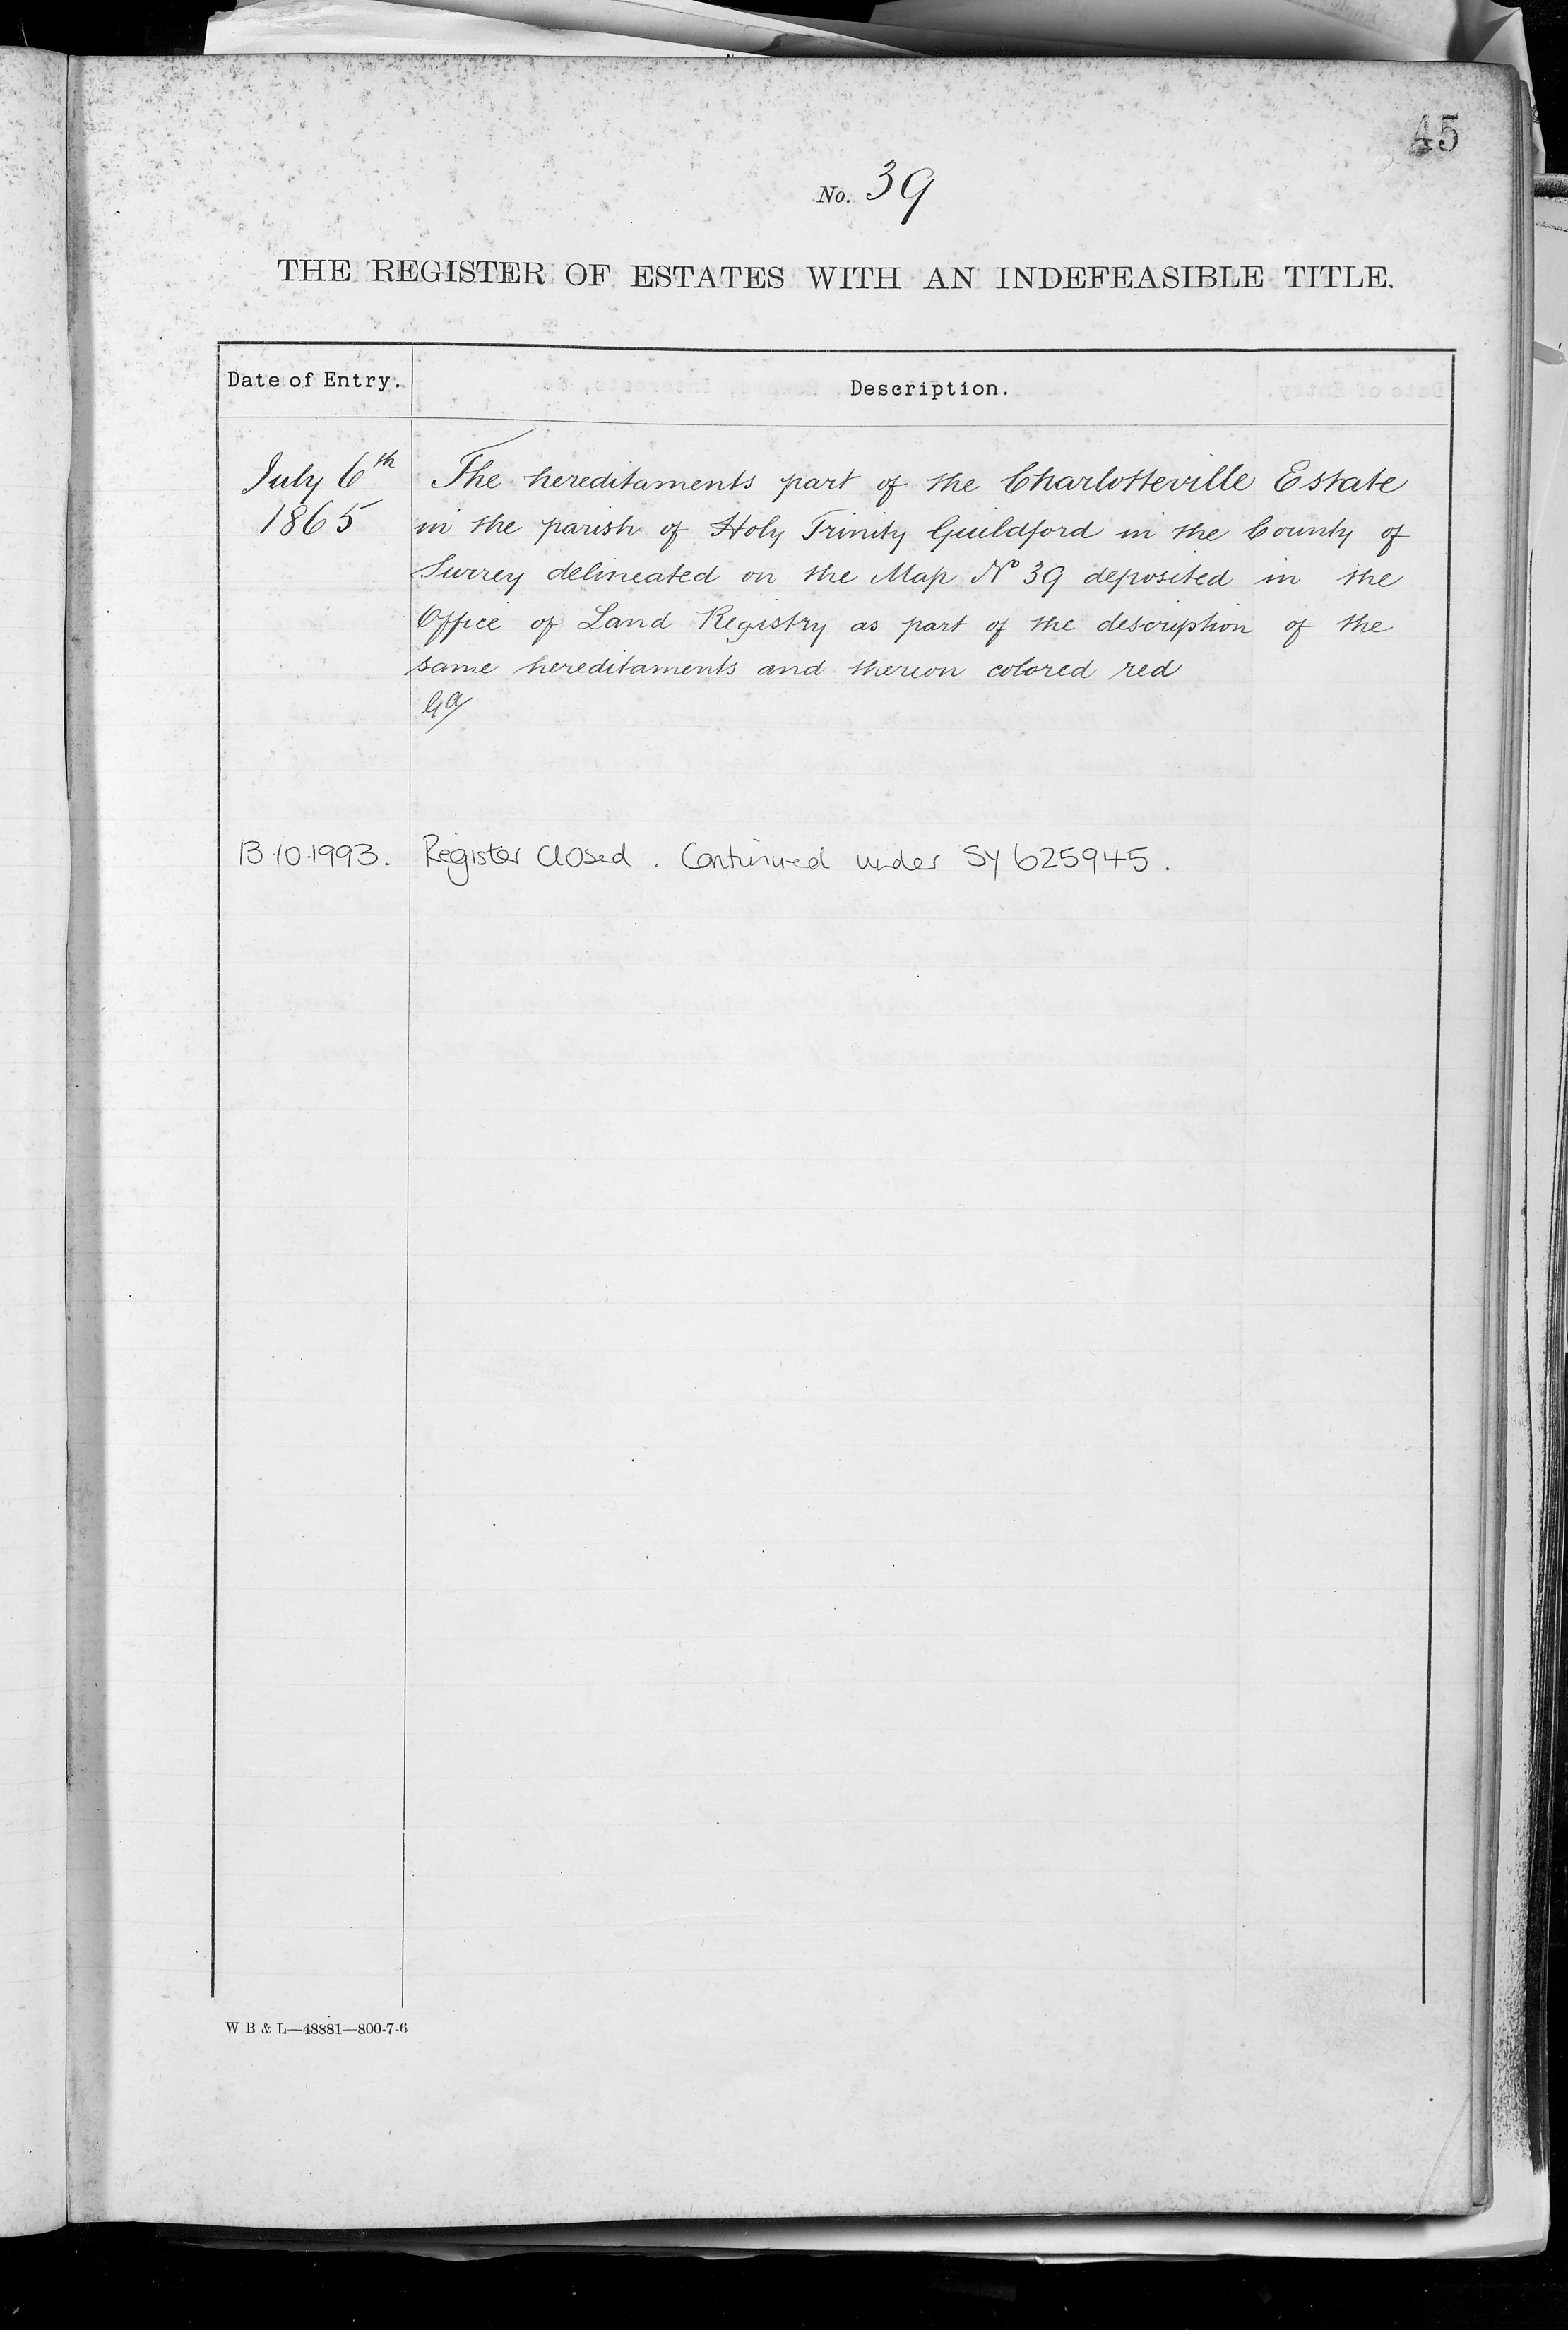 45
No. 39
THE REGISTER OF ESTATES WITH AN INDEFEASIBLE TITLE.
Date of Entry.
Description.
July 6th
1865
The hereditaments part of the Charlotteville Estate
in the parish of Holy Trinity Guildford in the County of
Surrey delineated on the Map No 39 deposited in the
Office of Land Registry as part of the description of the
same hereditaments and thereon colored red
13.10.1993.
Register Closed. Continued under SY 625945.
W B & L—48881—800-7-6